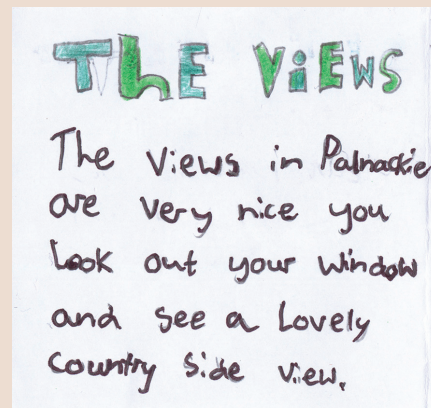 The Views
The Views in Palnackie
are very nice you
Look out your window
and see a Lovely
country side view.